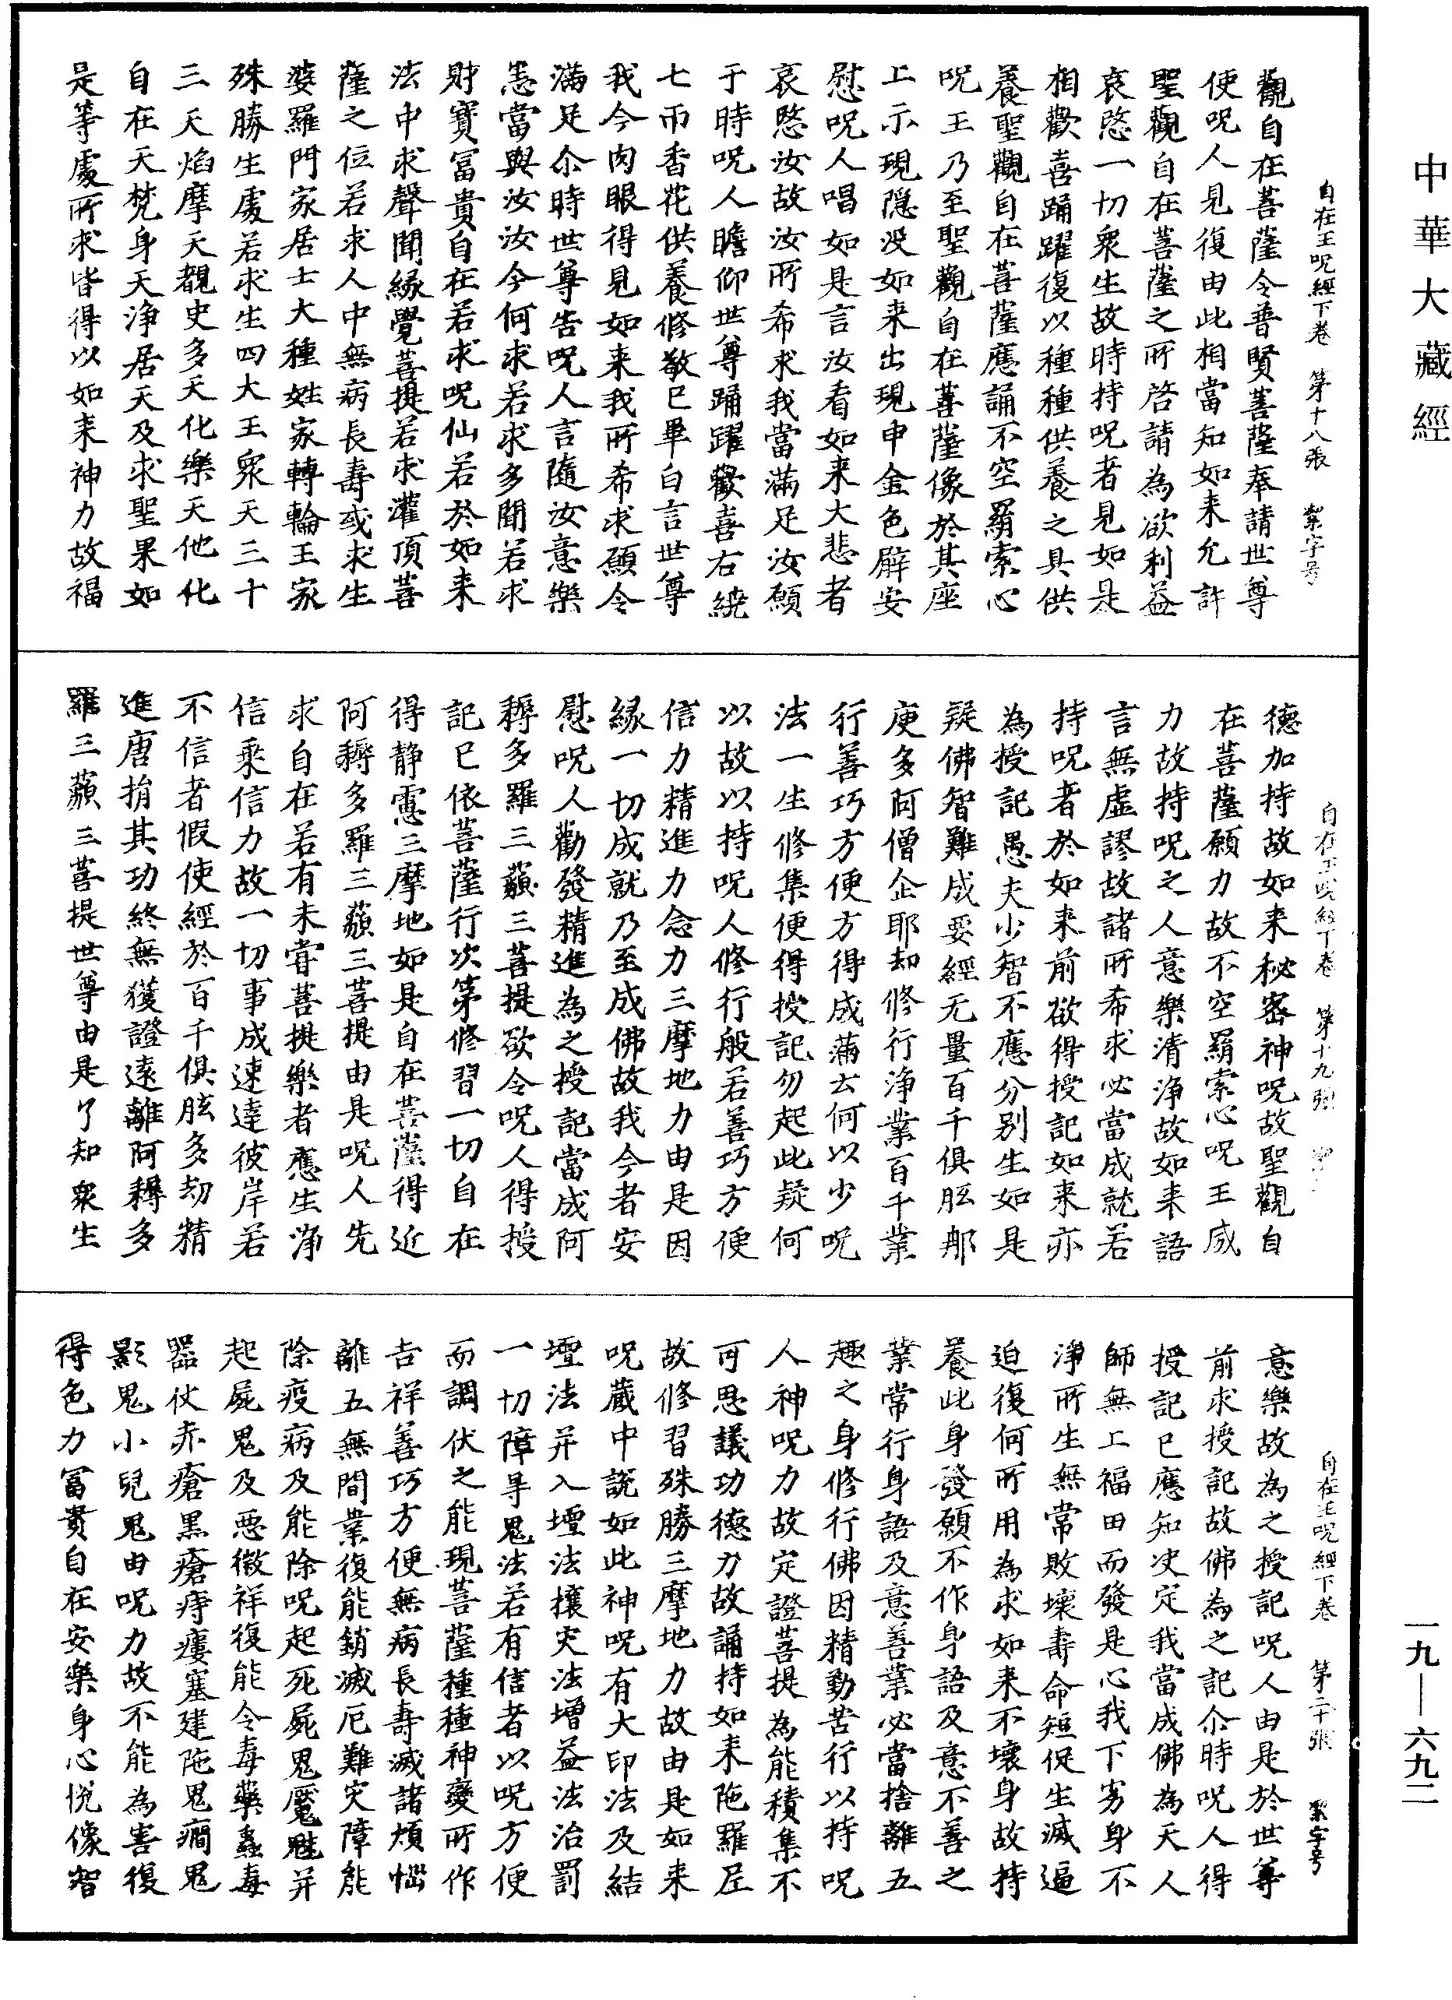 中華大藏經
自在王呪經下卷 第十八張 絜字号
觀自在菩薩令普賢菩薩奉請世尊
使呪人見復由此相當知如来允許
聖觀自在菩薩之所啓請為欲利益
哀愍一切衆生故時持呪者見如是
相歡喜踊躍復以種種供養之具供
養聖觀自在菩薩應誦不空羂索心
呪王乃至聖觀自在菩薩像於其座
上示現隠没如来出現申金色臂安
慰呪人唱如是言汝看如来大悲者
哀愍汝故汝所希求我當滿足汝願
于時呪人瞻仰世尊踊躍歡喜右繞
七帀香花供養修敬已畢白言世尊
我今肉眼得見如来我所希求願令
滿足尒時世尊告呪人言隨汝意樂
悉當與汝汝今何求若求多聞若求
財寳冨貴自在若求呪仙若於如来
法中求聲聞縁覺菩提若求灌頂菩
薩之位若求人中無病長壽或求生
婆羅門家居士大種姓家轉輪王家
殊勝生處若求生四大王衆天三十
三天焰摩天覩史多天化樂天他化
自在天梵身天淨居天及求聖果如
是等處所求皆得以如来神力故福
自在王呪經下卷 第十九張
德加持故如来秘密神呪故聖觀自
在菩薩願力故不空羂索心呪王威
力故持呪之人意樂清淨故如来語
言無虛謬故諸所希求必當成就若
持呪者於如来前欲得授記如来亦
為授記愚夫少智不應分別生如是
疑佛智難成要經无量百千俱胝那
庾多阿僧企耶劫修行淨業百千業
行善巧方便方得成滿云何以少呪
法一生修集便得授記勿起此疑何
以故以持呪人修行般若善巧方便
信力精進力念力三摩地力由是因
縁一切成就乃至成佛故我今者安
慰呪人勸發精進為之授記當成阿
耨多羅三藐三菩提欲令呪人得授
記已依菩薩行次第修習一切自在
得静慮三摩地如是自在菩薩得近
阿耨多羅三藐三菩提由是呪人先
求自在若有未甞菩提樂者應生淨
信乘信力故一切事成速達彼岸若
不信者假使經於百千俱胝多劫精
進唐捐其功終無獲證遠離阿耨多
羅三藐三菩提世尊由是了知衆生
自在王呪經下卷 第二十張 絜字号
意樂故為之授記呪人由是於世尊
前求授記故佛為之記尒時呪人得
授記已應知决定我當成佛為天人
師無上福田而發是心我下劣身不
淨所生無常敗壞壽命短促生滅逼
迫復何所用為求如来不壞身故持
養此身發願不作身語及意不善之
業常行身語及意善業必當捨離五
趣之身修行佛因精勤苦行以持呪
人神呪力故定證菩提為能積集不
可思議功德力故誦持如来陁羅尼
故修習殊勝三摩地力故由是如来
呪蔵中說如此神呪有大印法及結
壇法并入壇法攘灾法増益法治罰
一切障导鬼法若有信者以呪方便
而調伏之能現菩薩種種神變所作
吉祥善巧方便無病長壽滅諸煩惱
離五無間業復能銷滅厄難灾障能
除疫病及能除呪起死屍鬼魘魅并
起屍鬼及惡徵祥復能令毒藥蟲毒
器仗赤瘡黒瘡痔瘻塞建陁鬼癎鬼
影鬼小兒鬼由呪力故不能為害復
得色力冨貴自在安樂身心悅像智
一九—六九二